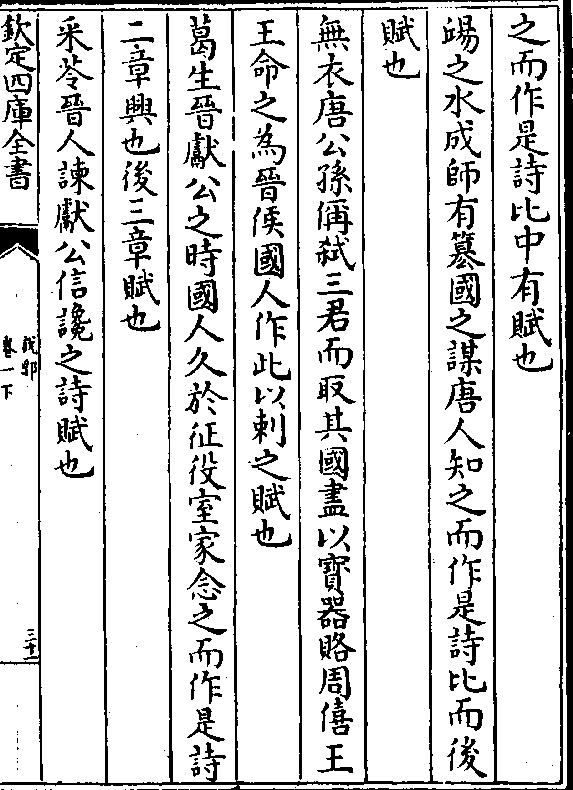 之而作是詩比中有賦也
䑛之水成師有簒國之謀唐人知之而作是詩比而後
賦也
無衣唐公孫偁弑三君而取其國盡以寳器賂周僖王
王命之為晉侯國人作此以刺之賦也
葛生晉獻公之時國人久於征役室家念之而作是詩
二章興也後三章賦也
采苓晉人諫獻公信讒之詩賦也
欽定四庫全書
卷一下